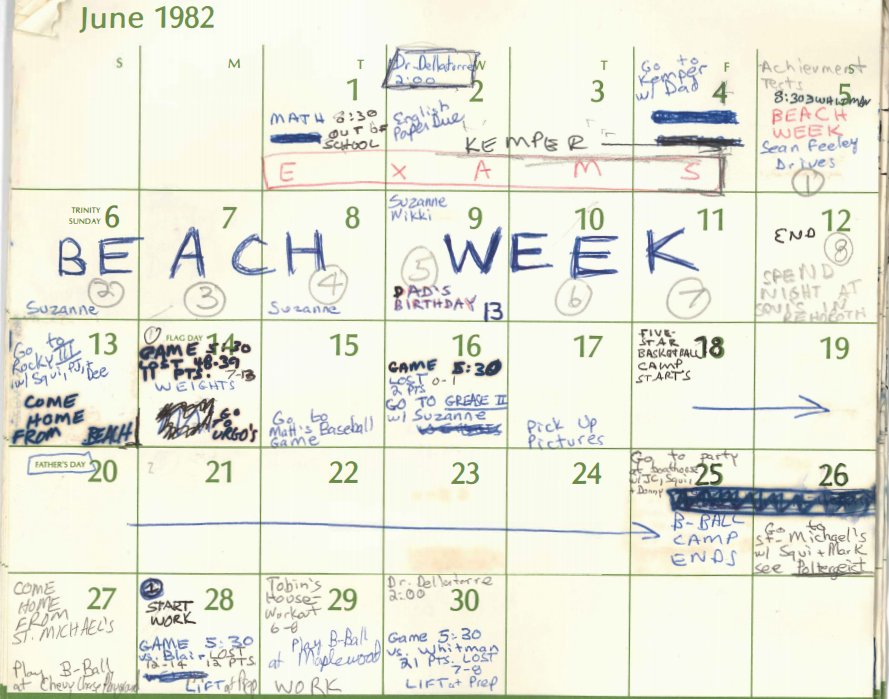 June 1982
S M T W T F S
1
MATH 8:30
OUT OF
SCHOOL
Dr. Dellatorre
2:00
2
English
Paper Due
3
KEMPER
Go to
Kemper
w/ Dad
4
E X A M S
Achievement
Tests
5
8:30 WHITMAN
BEACH
WEEK
Sean Feeley
Drives
1
TRINITY
SUNDAY
6
7
8
Suzanne
Nikki
9
10
11
12
BEACH WEEK
END
2
3
4
5
6
7
8
Suzanne
Suzanne
DAD'S
BIRTHDAY
13
SPEND
NIGHT AT
SQUI'S IN
REHOBOTH
13
Go to
Rocky III
w/ Squi, PJ, +
Dee
COME
HOME
FROM BEACH
1
FLAG DAY
14
GAME 5:30
LOST 48-39
11 PTS. 7-13
WEIGHTS
GO
TO
URGO'S
15
Go to
Matt's Baseball
Game
16
GAME 5:30
LOST 0-1
2 PTS
GO TO GREASE II
w/ Suzanne
17
Pick Up
Pictures
FIVE-
STAR
BASKETBALL
CAMP
STARTS
18
19
FATHER'S DAY
20
2
21
22
23
24
Go to party
at boathouse
w/ JC, Squi,
+ Donny
25
B-BALL
CAMP
ENDS
26
Go to
St. Michael's
w/ Squi + Mark
see Poltergeist
COME
HOME
FROM
ST. MICHAEL'S
27
Play B-Ball
at Chevy Chase Playground
1
START
WORK
28
GAME 5:30
vs. Blair LOST
12-14 12 PTS.
LIFT at Prep
Tobin's
House-
Workout
6-8
29
Play B-Ball
at Maplewood
WORK
Dr. Dellatorre
2:00
30
Game 5:30
vs. Whitman
21 Pts. LOST
7-8
LIFT at Prep